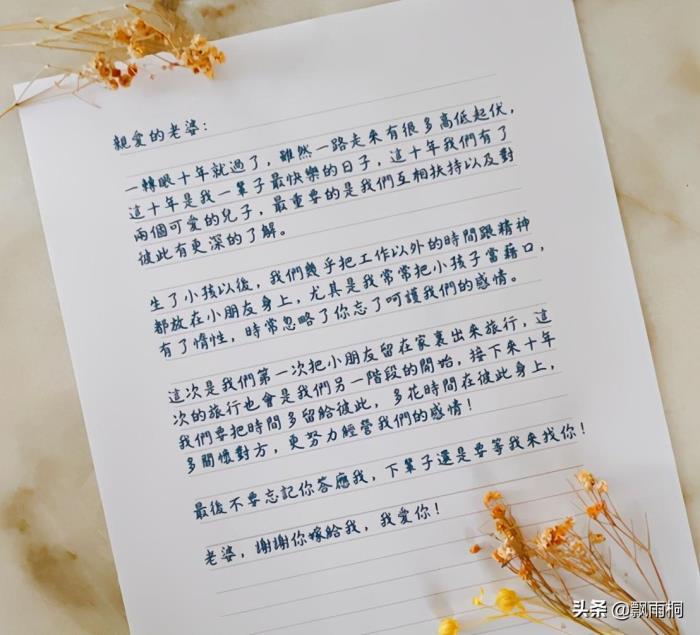 親愛的老婆：
一轉眼十年就過了，雖然一路走來有很多高低起伏，
這十年是我一輩子最快樂的日子，這十年我們有了
兩個可愛的兒子，最重要的是我們互相扶持以及對
彼此有更深的了解。
生了小孩以後，我們幾乎把工作以外的時間跟精神
都放在小朋友身上，尤其是我常常把小孩子當藉口，
有了惰性，時常忽略了你忘了呵護我們的感情。
這次是我們第一次把小朋友留在家裏出來旅行，這
次的旅行也會是我們另一階段的開始，接下來十年
我們要把時間多留給彼此，多花時間在彼此身上，
多關懷對方，更努力經營我們的感情！
最後不要忘記你答應我，下輩子還是要等我來找你！
老婆，謝謝你嫁給我，我愛你！
头条 @飘雨桐